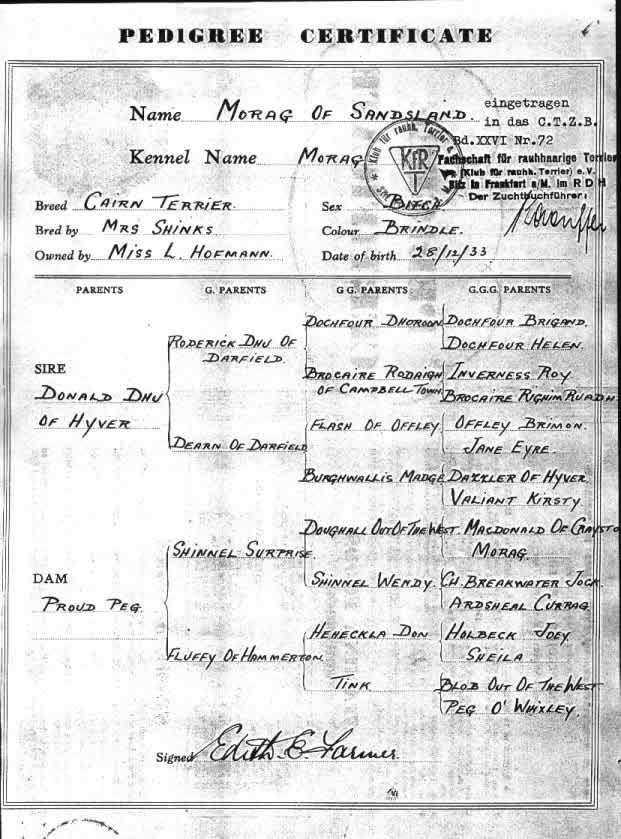 PEDIGREE CERTIFICATE
Name MORAG OF SANDSLAND.
eingetragen
in das C.T.Z.B.
Bd.XXVI Nr.72
Kennel Name MORAG
Klub für rauhh. Terrier e.V.
KfR
Fachschaft für rauhhaarige Terrier
(Klub für rauhh. Terrier) e.V.
Sitz in Frankfurt a/M. im R D H
Der Zuchtbuchführer:
Breed CAIRN TERRIER. Sex BITCH.
Bred by MRS SHINKS. Colour BRINDLE.
Owned by MISS L. HOFMANN. Date of birth 28/12/33
PARENTS G. PARENTS G G. PARENTS G.G.G. PARENTS
DOCHFOUR DHOROON DOCHFOUR BRIGAND.
RODERICK DHU OF
DARFIELD.
DOCHFOUR HELEN.
SIRE
BROCAIRE RODAIGN
OF CAMPBELL TOWN
INVERNESS ROY
BROCAIRE RIGHIM RUADH
DONALD DHU
OF HYVER
FLASH OF OFFLEY OFFLEY BRIMON.
JANE EYRE.
DEARN OF DARFIELD
BURGHWALLIS MADGE DAZZLER OF HYVER
VALIANT KIRSTY
DOUGHALL OUT OF THE WEST. MACDONALD OF CRAYSTO
MORAG.
SHINNEL SURPRISE.
DAM
SHINNEL WENDY. CH. BREAKWATER JOCK.
ARDSHEAL CURRAG
PROUD PEG.
HEHECKLA DON HOLBECK JOEY
SHEILA.
FLUFFY OF HAMMERTON.
TINK. BLOB OUT OF THE WEST
PEG O' WHIXLEY.
Signed Edith E. Farmer.